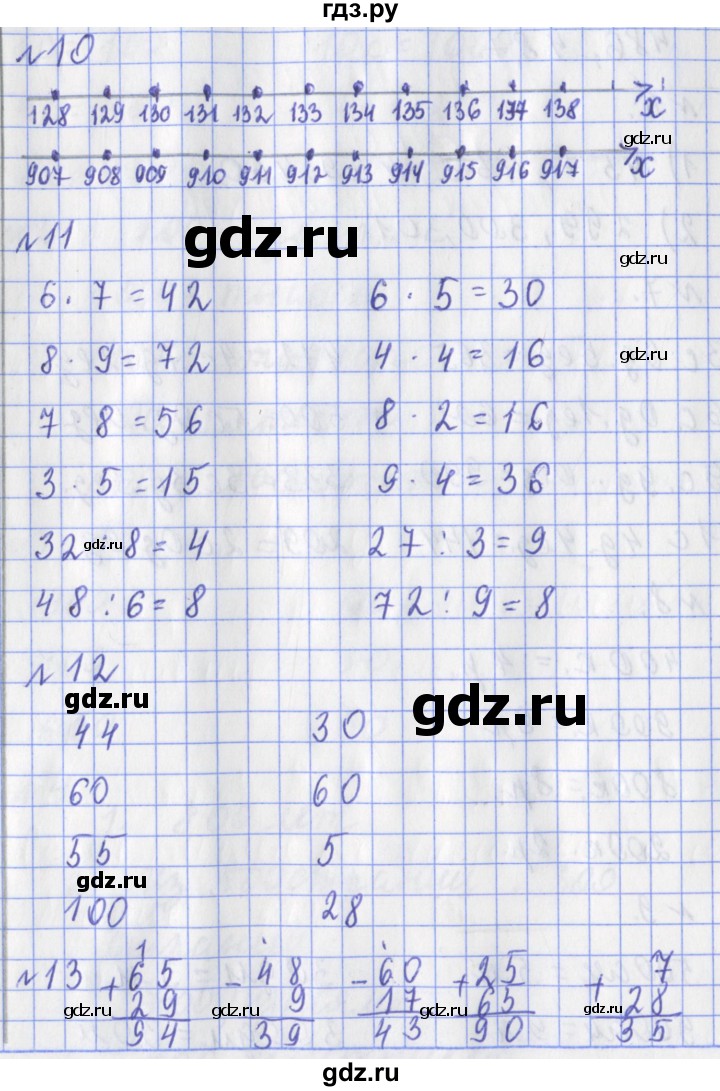 гдз.ру
№10
128 129 130 131 132 133 134 135 136 137 138 x
gdz.ru
907 908 909 910 911 912 913 914 915 916 917 x
№11
gdz.ru
gdz.ru
6 · 7 = 42 6 · 5 = 30
8 · 9 = 72 4 · 4 = 16 gdz.ru
7 · 8 = 56 8 · 2 = 16
3 · 5 = 15 9 · 4 = 36
32 : 8 = 4 27 : 3 = 9
gdz.ru
48 : 6 = 8 72 : 9 = 8
№12
gdz.ru gdz.ru
44 30
60 60
55 5
gdz.ru
100 28
1
№13 + 65 - 48 - 60 + 25 + 7
gdz.ru 29 gdz.ru 9 gdz.ru 17 gdz.ru 65 gdz.ru 28
94 39 43 90 35
gdz.ru